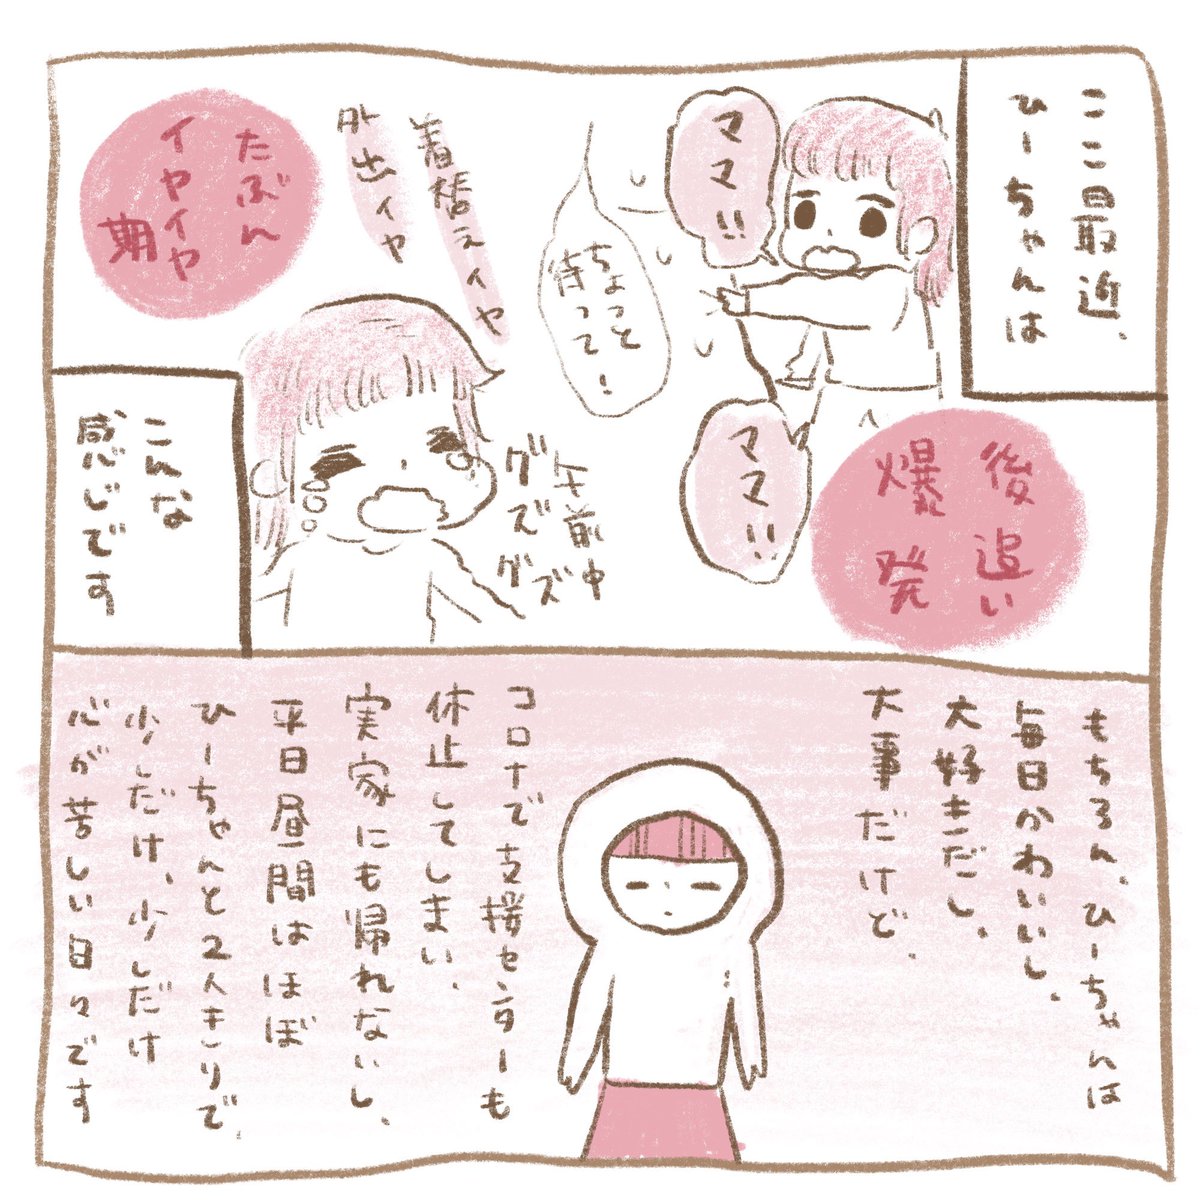 ここ最近、
ひーちゃんは
ママ!!
ちょっと
待って!
ママ!!
後追い
爆発
着替えイヤ
外出イヤ
たぶん
イヤイヤ
期
午前中
グズグズ
こんな
感じです
もちろん、ひーちゃんは
毎日かわいいし、
大好きだし、
大事だけど、
コロナで支援センターも
休止してしまい、
実家にも帰れないし、
平日昼間はほぼ
ひーちゃんと2人きりで、
少しだけ、少しだけ
心が苦しい日々です